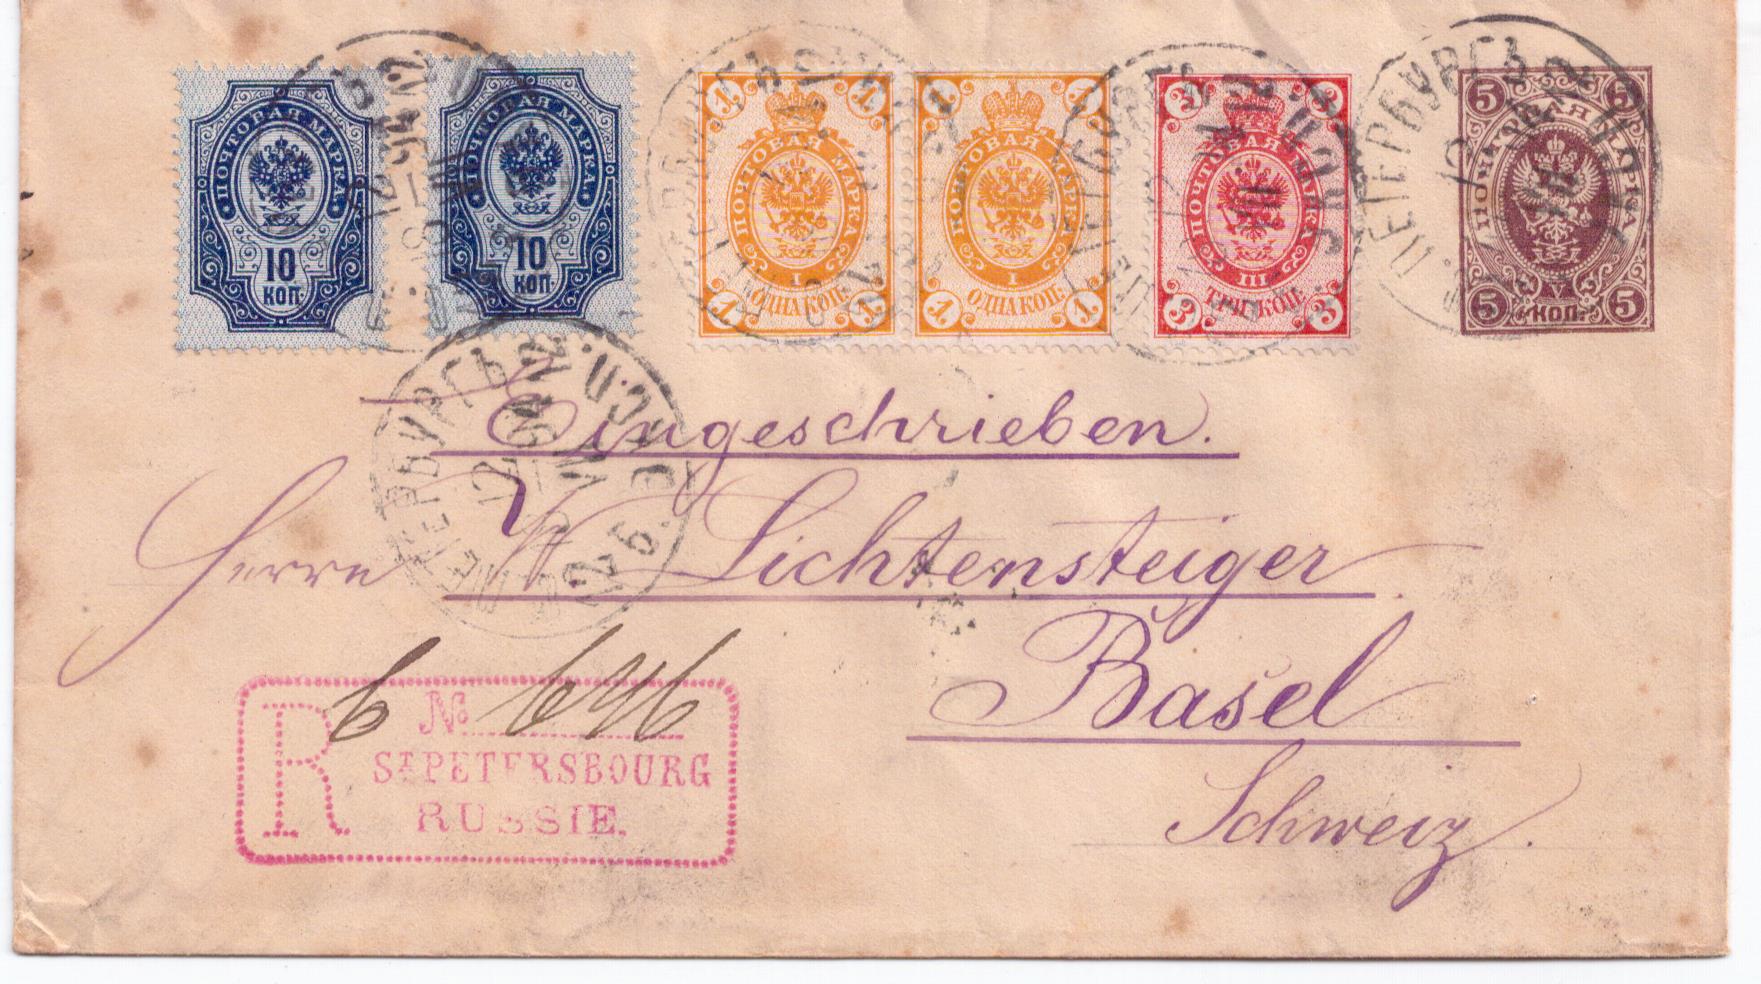 ПОЧТОВАЯ МАРКА.
10
КОП.
ПОЧТОВАЯ МАРКА.
10
КОП.
1 1
ПОЧТОВАЯ МАРКА
I
1 ОДНА КОП. 1
1 1
ПОЧТОВАЯ МАРКА
I
1 ОДНА КОП. 1
3 3
ПОЧТОВАЯ МАРКА
III
3 ТРИ КОП. 3
5 5
ПОЧТОВАЯ МАРКА
V
5 КОП. 5
ПЕТЕРБУРГЪ
Eingeschrieben.
Herrn W Lichtensteiger
Basel
Schweiz.
R № 646
ST PETERSBOURG
RUSSIE.